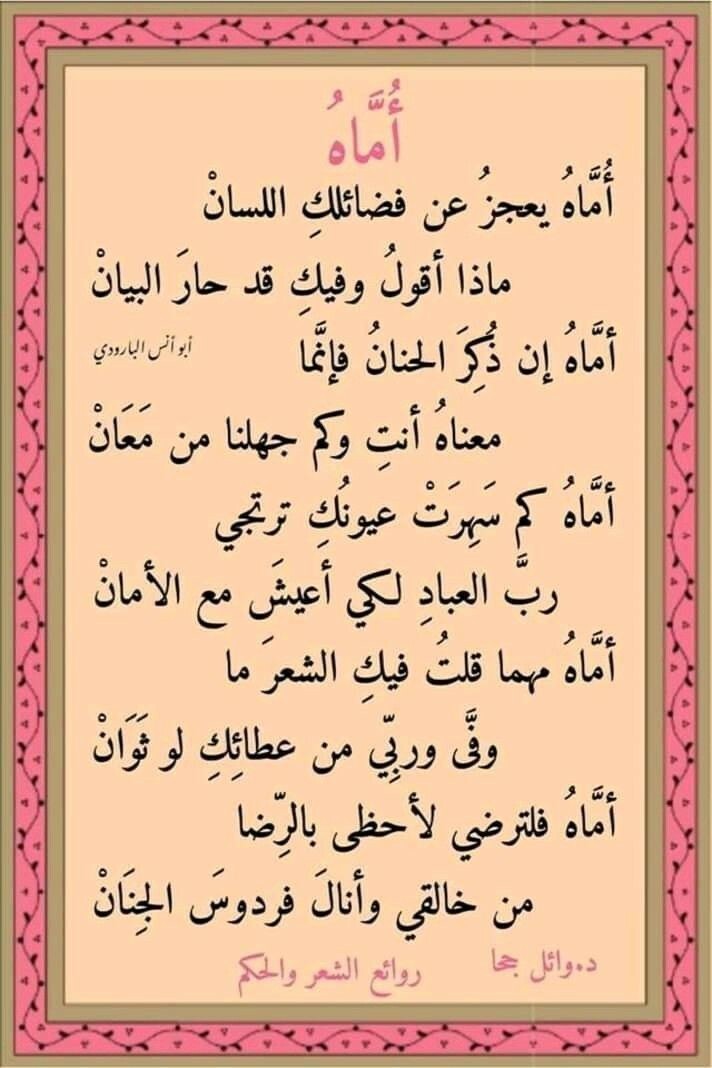 أُمَّاهُ
أُمَّاهُ يعجزُ عن فضائلكِ اللسانْ
ماذا أقولُ وفيكِ قد حارَ البيانْ
أمَّاهُ إن ذُكِرَ الحنانُ فإنَّما
أبو أنس البارودي
معناهُ أنتِ وكم جهلنا من مَعَانْ
أمَّاهُ كم سَهِرَتْ عيونُكِ ترتجي
ربَّ العبادِ لكي أعيشَ مع الأمانْ
أمَّاهُ مهما قلتُ فيكِ الشعرَ ما
وفَّى وربِّي من عطائِكِ لو ثَوَانْ
أمَّاهُ فلترضي لأحظى بالرِّضا
من خالقي وأنالَ فردوسَ الجِنَانْ
د.وائل جحا
روائع الشعر والحكم